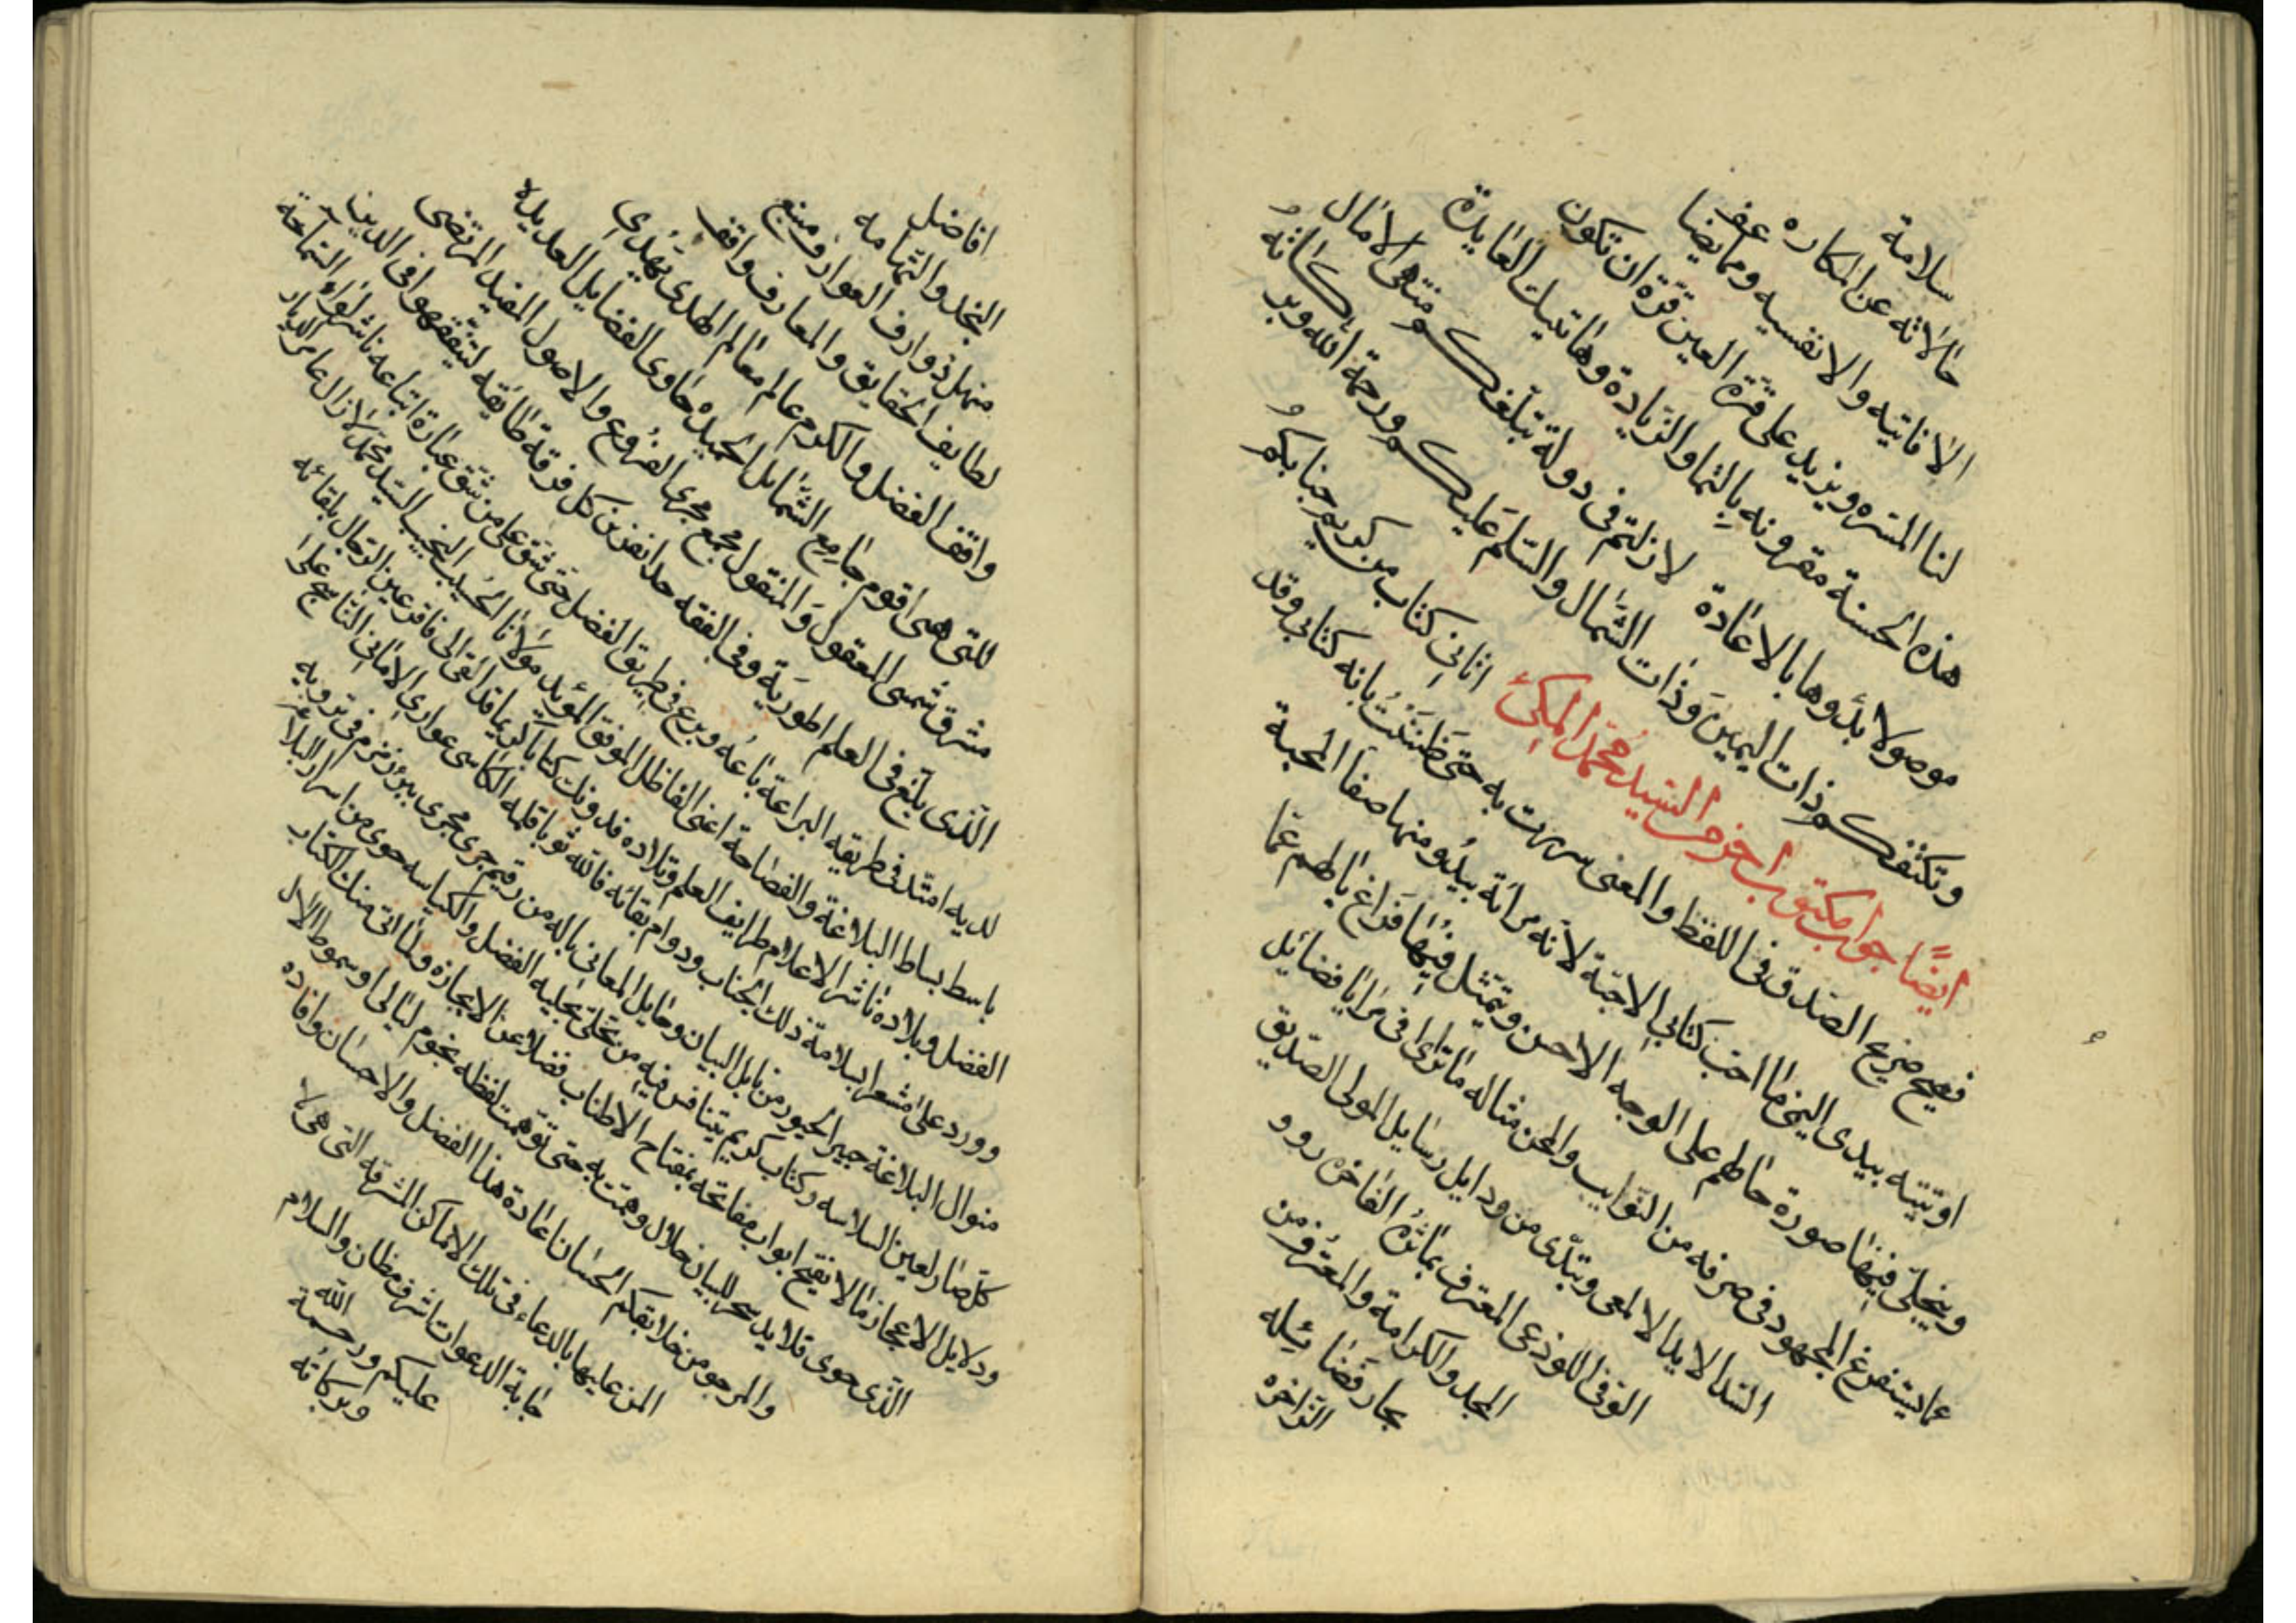 سلامة
حالاته عن المكاره
الافاقيه والانفسيه ومما يضا عف
لنا المسره ويزيد على قرة العين قرة ان تكون
هذه الحسنة مقرونه بالنما والزيادة وهاتيك العايدة
موصولا بدؤها بالاعادة لازلتم فى دولة تبلغكم منتهى الامال
وتكنفكم ذات اليمين وذات الشمال والسلم عليكم ورحمة الله وبركاته
ايضا جواب مكتوب اخر من السيد محمد المكى اتانى كتاب من كريم جنابكم
فصيح صريح الصدق فى اللفظ والمعنى سررت به حتى ظننت بانه كتابى وقد
اوتيته بيدى اليمنى ما احب كتابى الاحبة لانه مرأة يبدو منها صفا المحبة
ويتجلى فيها صورة خاطهم على الوجه الاحسن ويتمثل فيها فراغ باطهم عما
عما يستفرغ المجهود فى صرفه من النوايب والمحن مثاله ما ترأى فى مرايا فضايل
السند الايد الالمعى وتبدى من ودايل رسايل المولى الصديق
الوفى اللوذعى المعترف بمآثره الفاخره
المجد والكرامة والمغترف من
بحار فضائله
الزاخره
افاضل
النجد والتهامه
منهل ذوارف العوارف ومنبع
لطايف الحقايق والمعارف واقف
واقف الفضل والكرم عالم معالم الهدى يهدى
للتى هى اقوم جامع الشمايل الحميده حاوى الفضايل العديده
مشرق شمسى المعقول والمنقول مجمع بحرى الفروع والاصول المفيد المرتضى
الذى بلغ فى العلم اطوريه وفى الفقه حدا نفر من كل فرقة طائفه ليتفقهوا فى الدين
لديه امتد فى طريقه البراعة باعه وبرع فى طريق الفضل حتى شق على من شق غباره اتباعه ناشر لواء السماحة
باسط بساط البلاغة والفصاحة اعنى الفاظل الموفق المؤيد مولانا الحسيب النجيب السيد محمد لازال عامر الديار
الفضل وبلاده ناشر الاعلام طرايف العلم وتلاده فدونك كتابا كريما قد القى الى فاقر عين الرجال بلقائه
وورد على مشعرا بسلامة ذلك الجناب ودوام بقائه فالله ثوبا قلمه الكاسى عوارى الامانى الناسج على
منوال البلاغة حبير الحبور من نابل البيان وحايل المعانى ياله من رقيم جرى مجرى بئر زمزم فى ترويه
كل صاد لعين السلاسه وكتاب كريم يتنافس فيه من تحلى بحليه الفضل والكياسه حوى من اسرار البلاغة
ودلايل الاعجاز ما لا يفتح ابواب مفاتحه بمفتاح الاطناب فضلا عن الايجازه ولما اتى منك الكتاب
الذى حوى قلايد سحر للبيان حلال وهمت به حتى توهمت لفظه نجوم ليالى او سموط الال
والمرجو من خلايقكم الحسان اعادة هذا الفضل والاحسان وافاده
المن عليها بالدعاء فى تلك الاماكن المشرفه التى هى لا
جابة الدعوات اشرف مظان والسلام
عليكم ورحمة الله
وبركاته